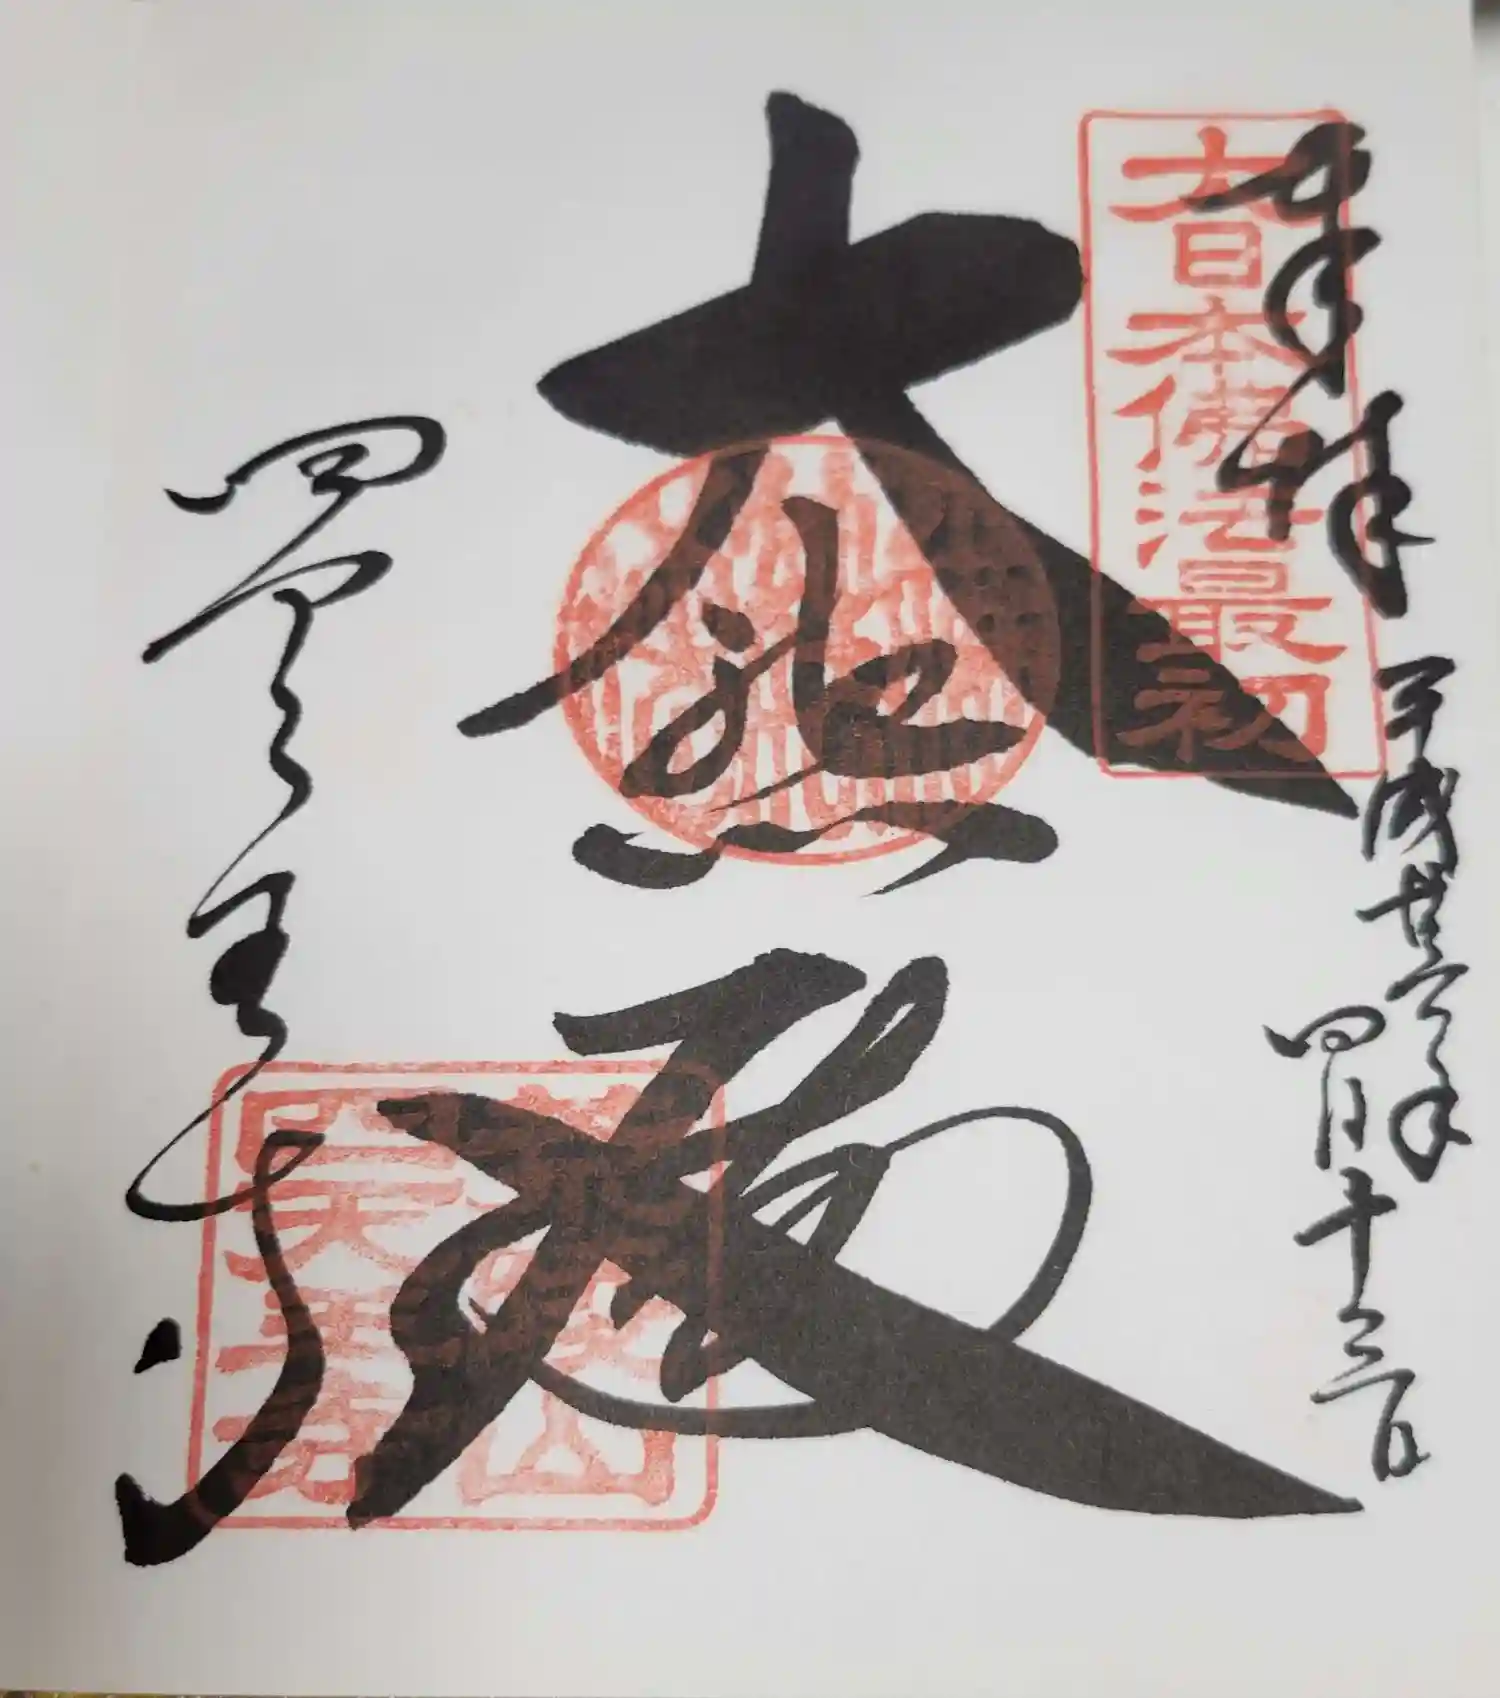 奉拝
大日本佛法最初
平成廿六年
四月十三日
大悲殿
四天王寺
荒陵山
四天王寺